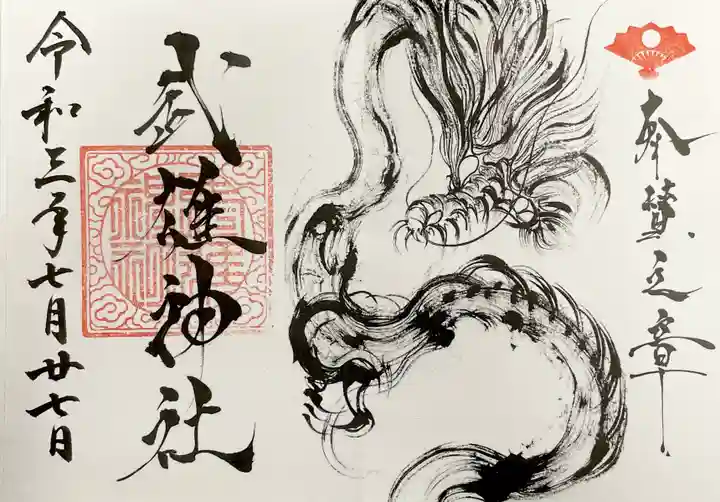 奉贊之章
武神社
令和三年七月廿七日